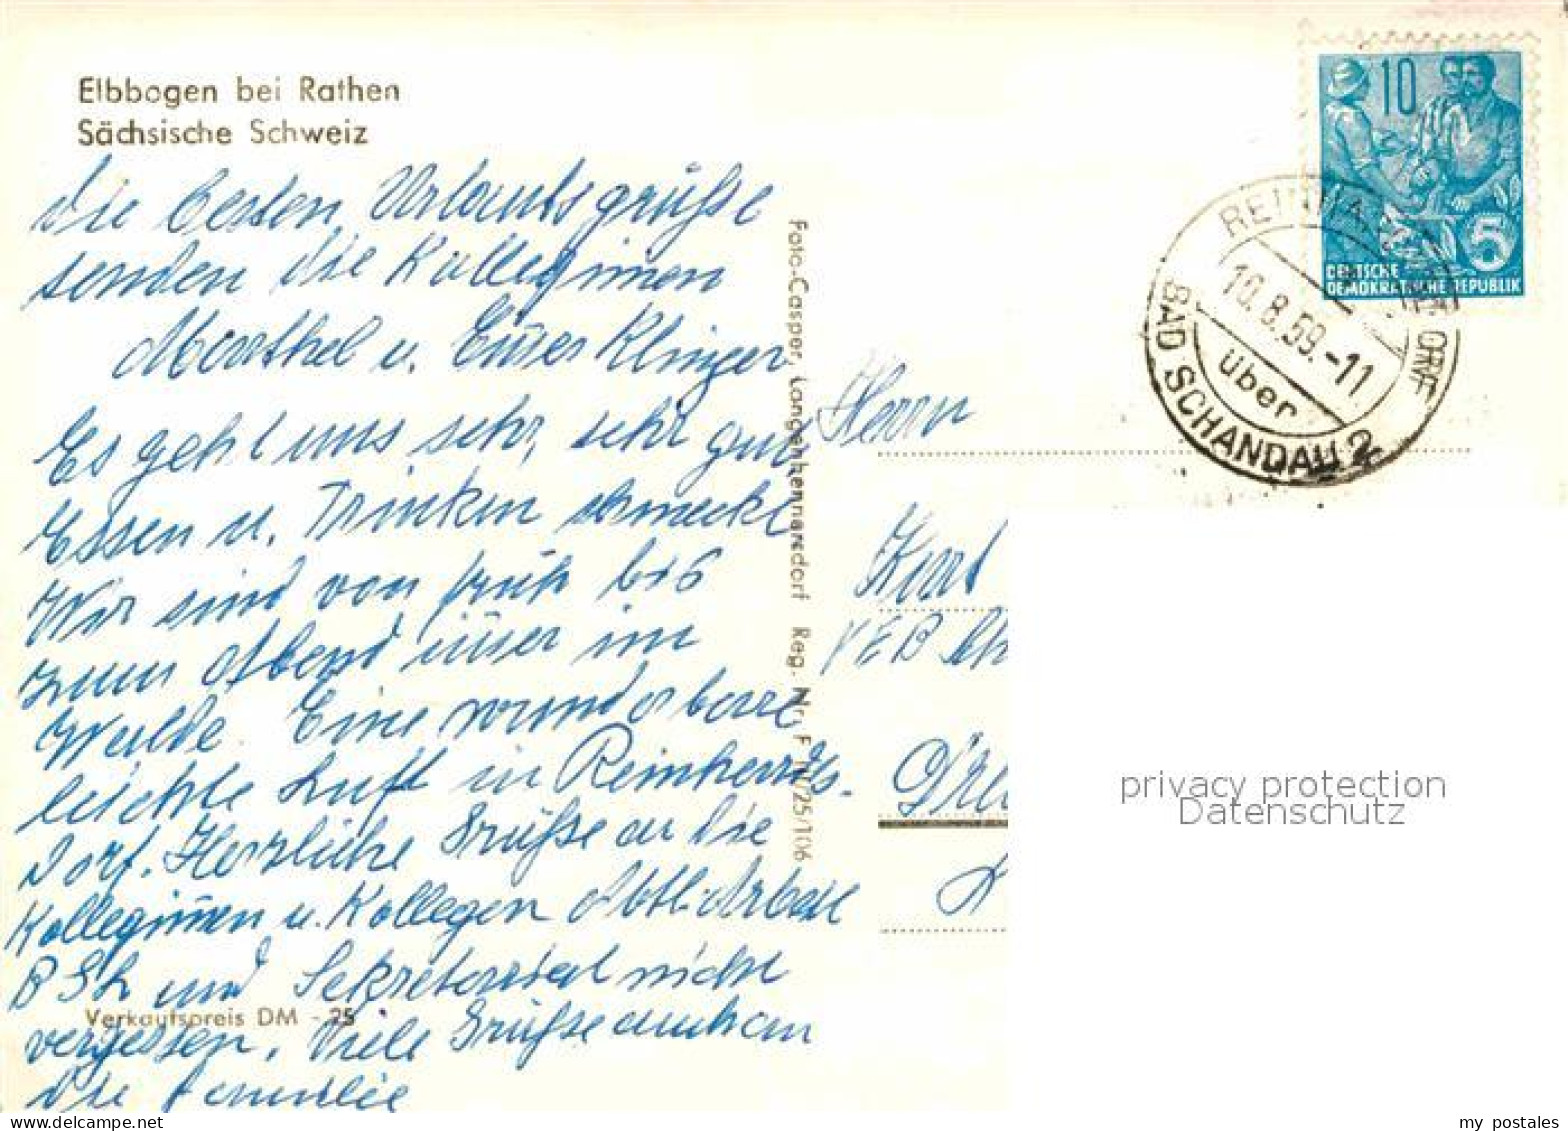 Elbbogen bei Rathen
Sächsische Schweiz
die besten Urlaubsgrüße
senden die Kolleginnen
u. Euer Klinger
Es geht uns sehr, sehr gut
Essen u. Trinken schmeckt
Wir sind von früh bis
zum Abend im
Walde. Eine wunderbare
leichte Luft in Reinhards-
dorf. Herzliche Grüße an die
Kolleginnen u. Kollegen Abtl. Arbeit
und Sekretariat nicht
Verkaufspreis DM -.25
vergessen. Viele Grüße auch an
die Familie
Foto-Casper, Langenhennersdorf Reg.-Nr. F 10/25/106
10
5
DEUTSCHE
DEMOKRATISCHE REPUBLIK
10.8.59.-11
über
BAD SCHANDAU 2
Herrn
Kurt
VEB
privacy protection
Datenschutz
my postales